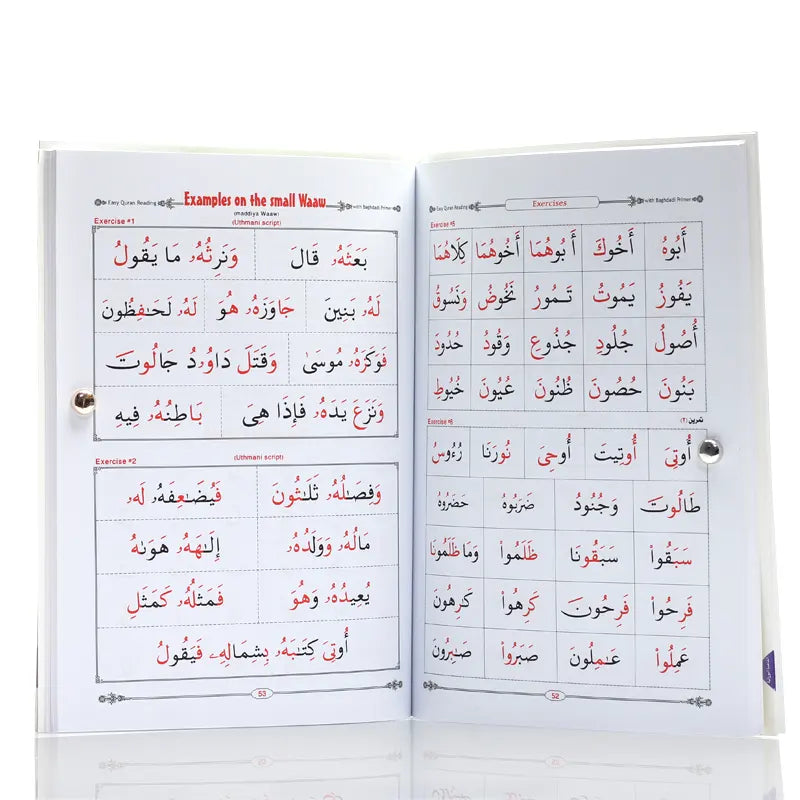 Easy Quran Reading
Exercises
with Baghdadi Primer
Exercise #5
أَبُوهُ أَخُوكَ أَبُوهُمَا أَخُوهُمَا كِلَاهُمَا
يَفُوزُ يَمُوتُ تَمُورُ نَخُوضُ وَنَسُوقُ
أُصُولُ جُلُودِ جُذُوعِ وَقُودُ حُدُودَ
بَنُونَ حُصُونَ ظُنُونَ عُيُونَ خُيُوطِ
Exercise #6
تمرين (٦)
أُوتِىَ أُوتِيتَ أُوحِىَ نُورَنَا رُءُوسُ
طَالُوتَ وَجُنُودُ ضَرَبُوهُ حَضَرُوهُ
سَبَقُوا۟ سَبَقُونَا ظَلَمُوا۟ وَمَا ظَلَمُونَا
فَرِحُوا۟ فَرِحُونَ كَرِهُوا۟ كَـٰرِهُونَ
عَمِلُوا۟ عَـٰمِلُونَ صَبَرُوا۟ صَـٰبِرُونَ
52
Easy Quran Reading
Examples on the small Waaw
with Baghdadi Primer
(maddiya Waaw)
Exercise #1
(Uthmani script)
بَعَثَهُۥ قَالَ وَنَرِثُهُۥ مَا يَقُولُ
لَهُۥ بَنِينَ جَاوَزَهُۥ هُوَ لَهُۥ لَحَـٰفِظُونَ
فَوَكَزَهُۥ مُوسَىٰ وَقَتَلَ دَاوُۥدُ جَالُوتَ
وَنَزَعَ يَدَهُۥ فَإِذَا هِىَ بَاطِنُهُۥ فِيهِ
Exercise #2
(Uthmani script)
وَفِصَـٰلُهُۥ ثَلَـٰثُونَ فَيُضَـٰعِفَهُۥ لَهُۥ
مَالُهُۥ وَوَلَدُهُۥ إِلَـٰهَهُۥ هَوَىٰهُ
يُعِيدُهُۥ وَهُوَ فَمَثَلُهُۥ كَمَثَلِ
أُوتِىَ كِتَـٰبَهُۥ بِشِمَالِهِۦ فَيَقُولُ
53